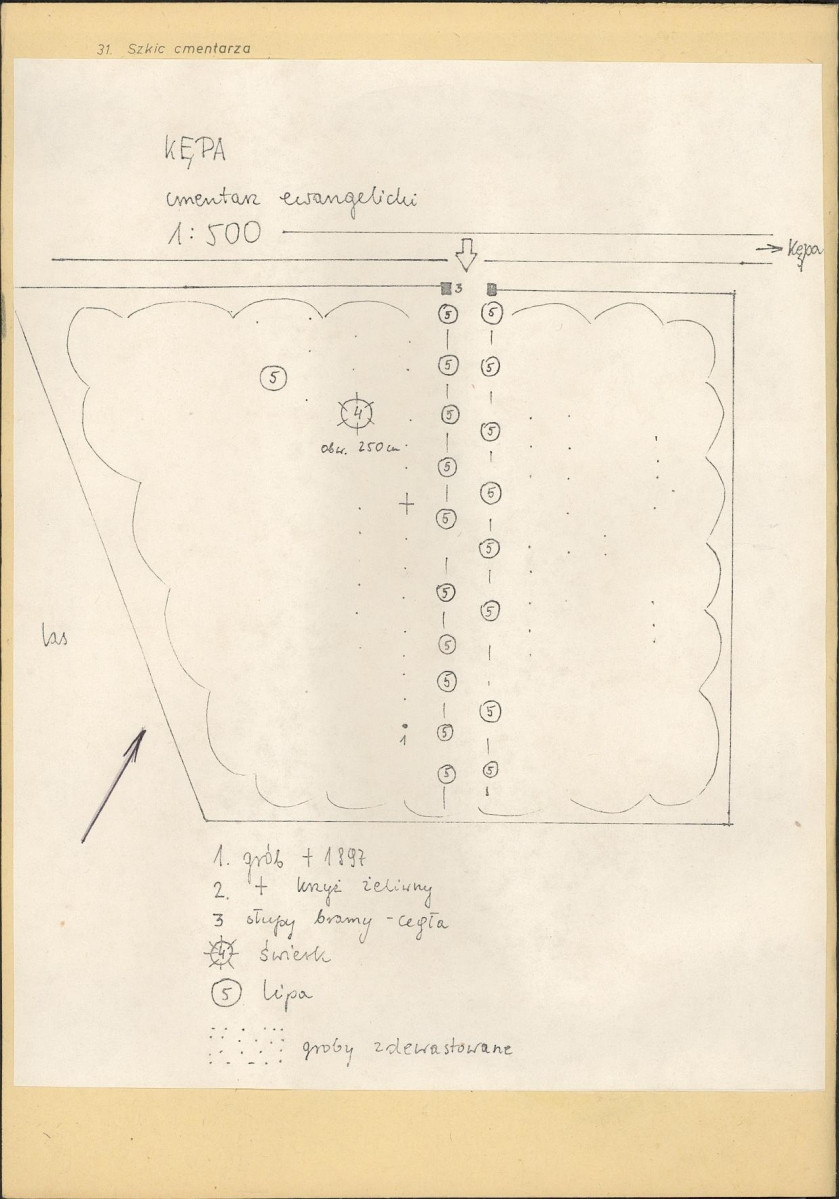 31. Szkic cmentarza
KĘPA
cmentarz ewangelicki
1:500
Kępa
3
5 5
5 5
5
4
5
obw. 250 cm
5
5
5
5
5
5
5
5
5
5
5
1
5
5
5
las
1. grób + 1897
2. + krzyż żeliwny
3 słupy bramy - cegła
4 świerk
5 lipa
groby zdewastowane